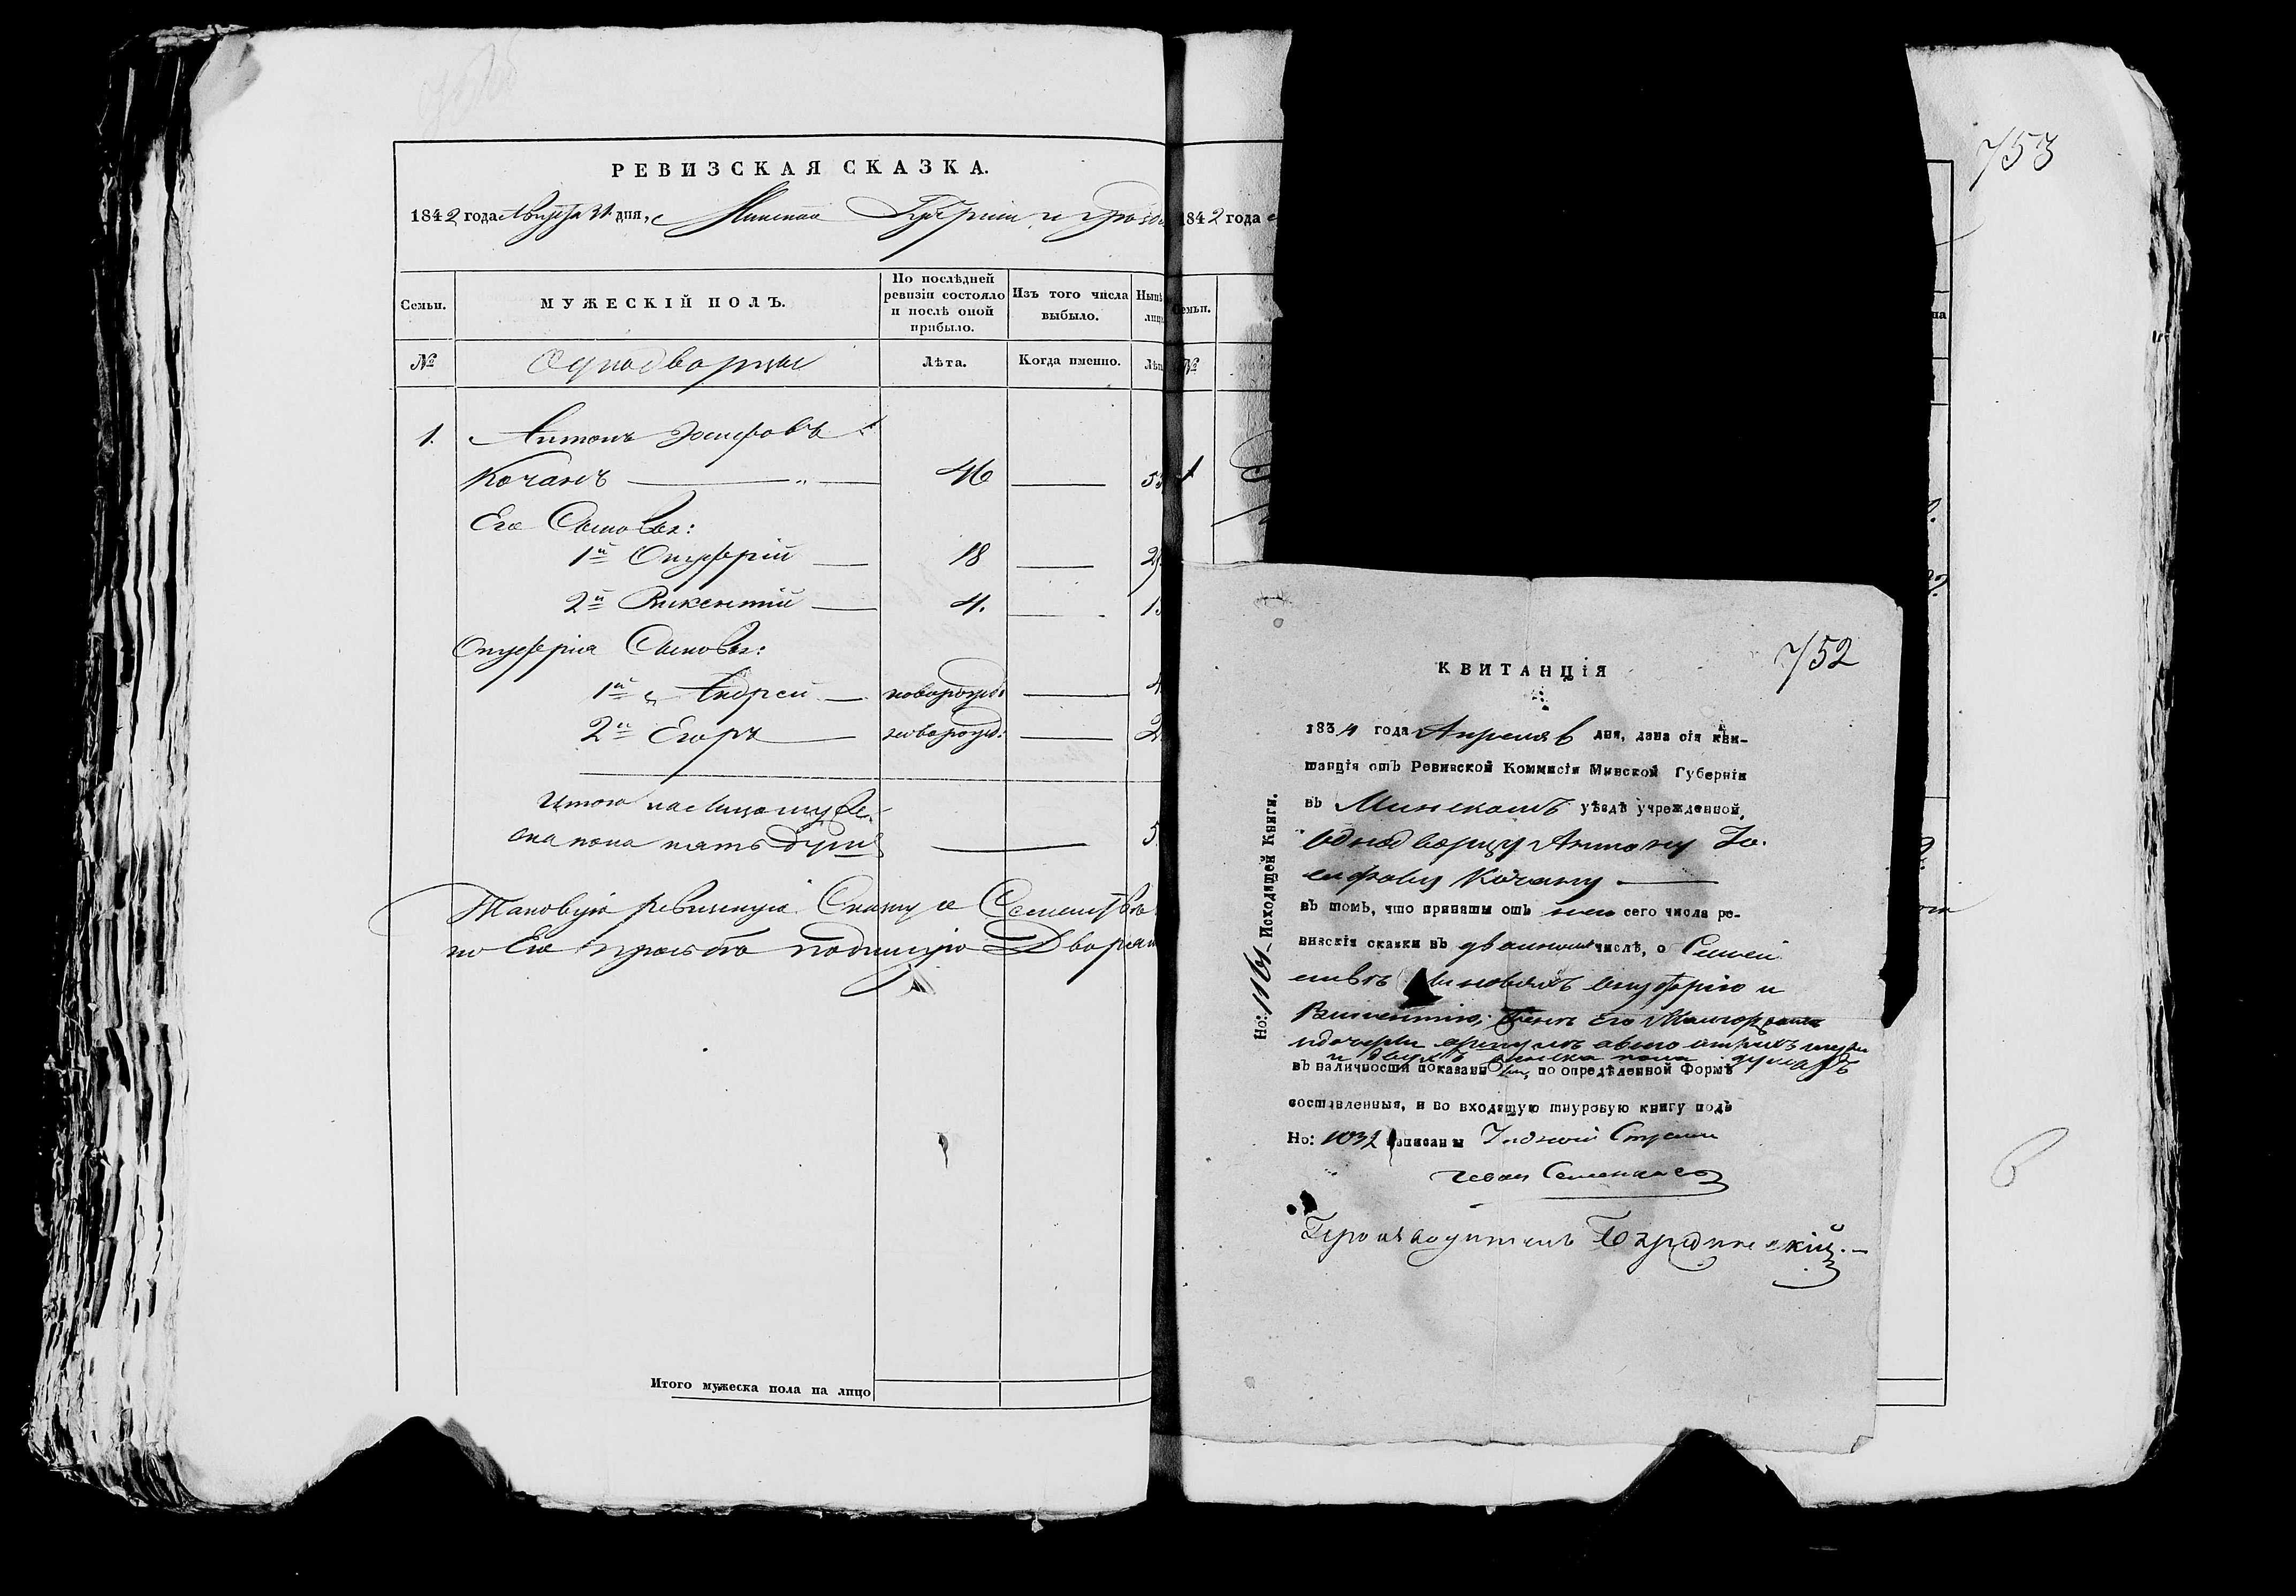 РЕВИЗСКАЯ СКАЗКА.
1842 года Августа 31 дня, Минской Губерніи и уѣзда
Семьи.
МУЖЕСКІЙ ПОЛЪ.
По послѣдней ревизіи состояло и послѣ оной прибыло.
Изъ того числа выбыло.
№
Однодворцы
Лѣта.
Когда именно.
1. Антонъ Іосифовъ
Кочанъ 46
Его Сыновья:
1й Онуфрій 18
2й Викентій 4.
Онуфрія Сыновья:
1й Андрей новорожд:
2й Егоръ новорожд:
Итого на лицо мужес-
ка пола пять душъ 5
Таковую ревизскую Сказку о Семействѣ
по Его прозьбѣ подписую
Итого мужеска пола на лицо
1842 года
Семьи.
№
1
753
752
КВИТАНЦІЯ
1834 года Апреля 6 дня, дана сія кви-
танція отъ Ревизской Коммисіи Минской Губерніи
въ Минскомъ уѣздѣ учрежденной,
однодворцу Антону Іо-
сифову Кочану
въ томъ, что приняты отъ него сего числа ре-
визскія сказки въ двойномъ числѣ, о Семей
ствѣ сыновьяхъ Онуфрію и
Викентію; женѣ его
и дочери
и двухъ женска пола душахъ
въ наличности показаны, по опредѣленной Формѣ
составленныя, и во входящую шнуровую книгу подъ
Но: 1032 записаны
Иванъ
Производитель
Но: 1161 Исходящей Книги.